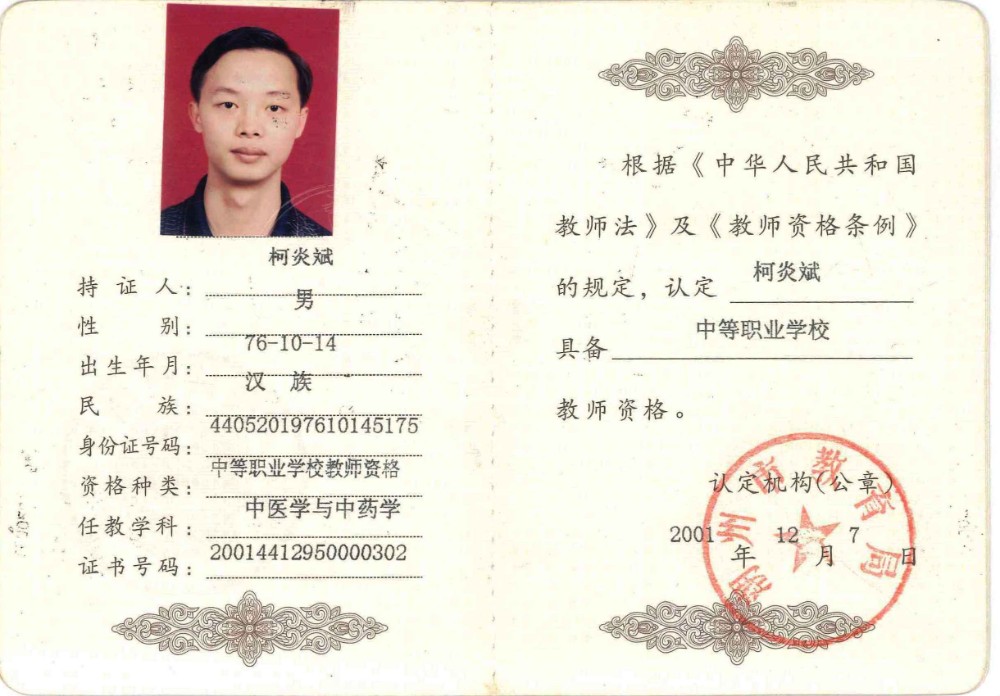 柯炎斌
持证人:
男
性别:
76-10-14
出生年月:
汉 族
民族:
440520197610145175
身份证号码:
中等职业学校教师资格
资格种类:
中医学与中药学
任教学科:
20014412950000302
证书号码:
根据《中华人民共和国
教师法》及《教师资格条例》
的规定，认定 柯炎斌
具备 中等职业学校
教师资格。
认定机构(公章)
2001年12月7日
州市教育局